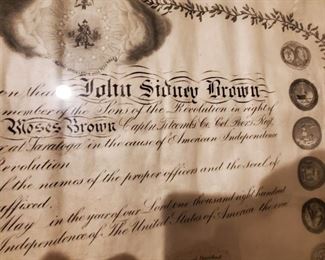 on the
John Sidney Brown
member of the Sons of the Revolution in right of
Moses Brown Capt. Titcombs Co. Col.
at Saratoga in the cause of American Independence
Revolution
of the names of the proper officers and the seal of
affixed.
May in the year of our Lord one thousand eight hundred
Independence of The United States of America the one